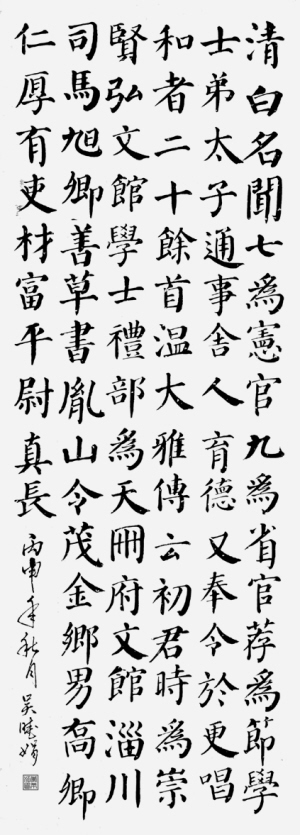 清白名聞七為憲官九為省官荐為節學
士弟太子通事舍人育德又奉令於更唱
和者二十餘首温大雅傳云初君時為崇
賢弘文館學士禮部為天冊府文館淄川
司馬旭卿善草書胤山令茂金鄉男高卿
仁厚有吏材富平尉真長
丙申年秋月吴晓娟